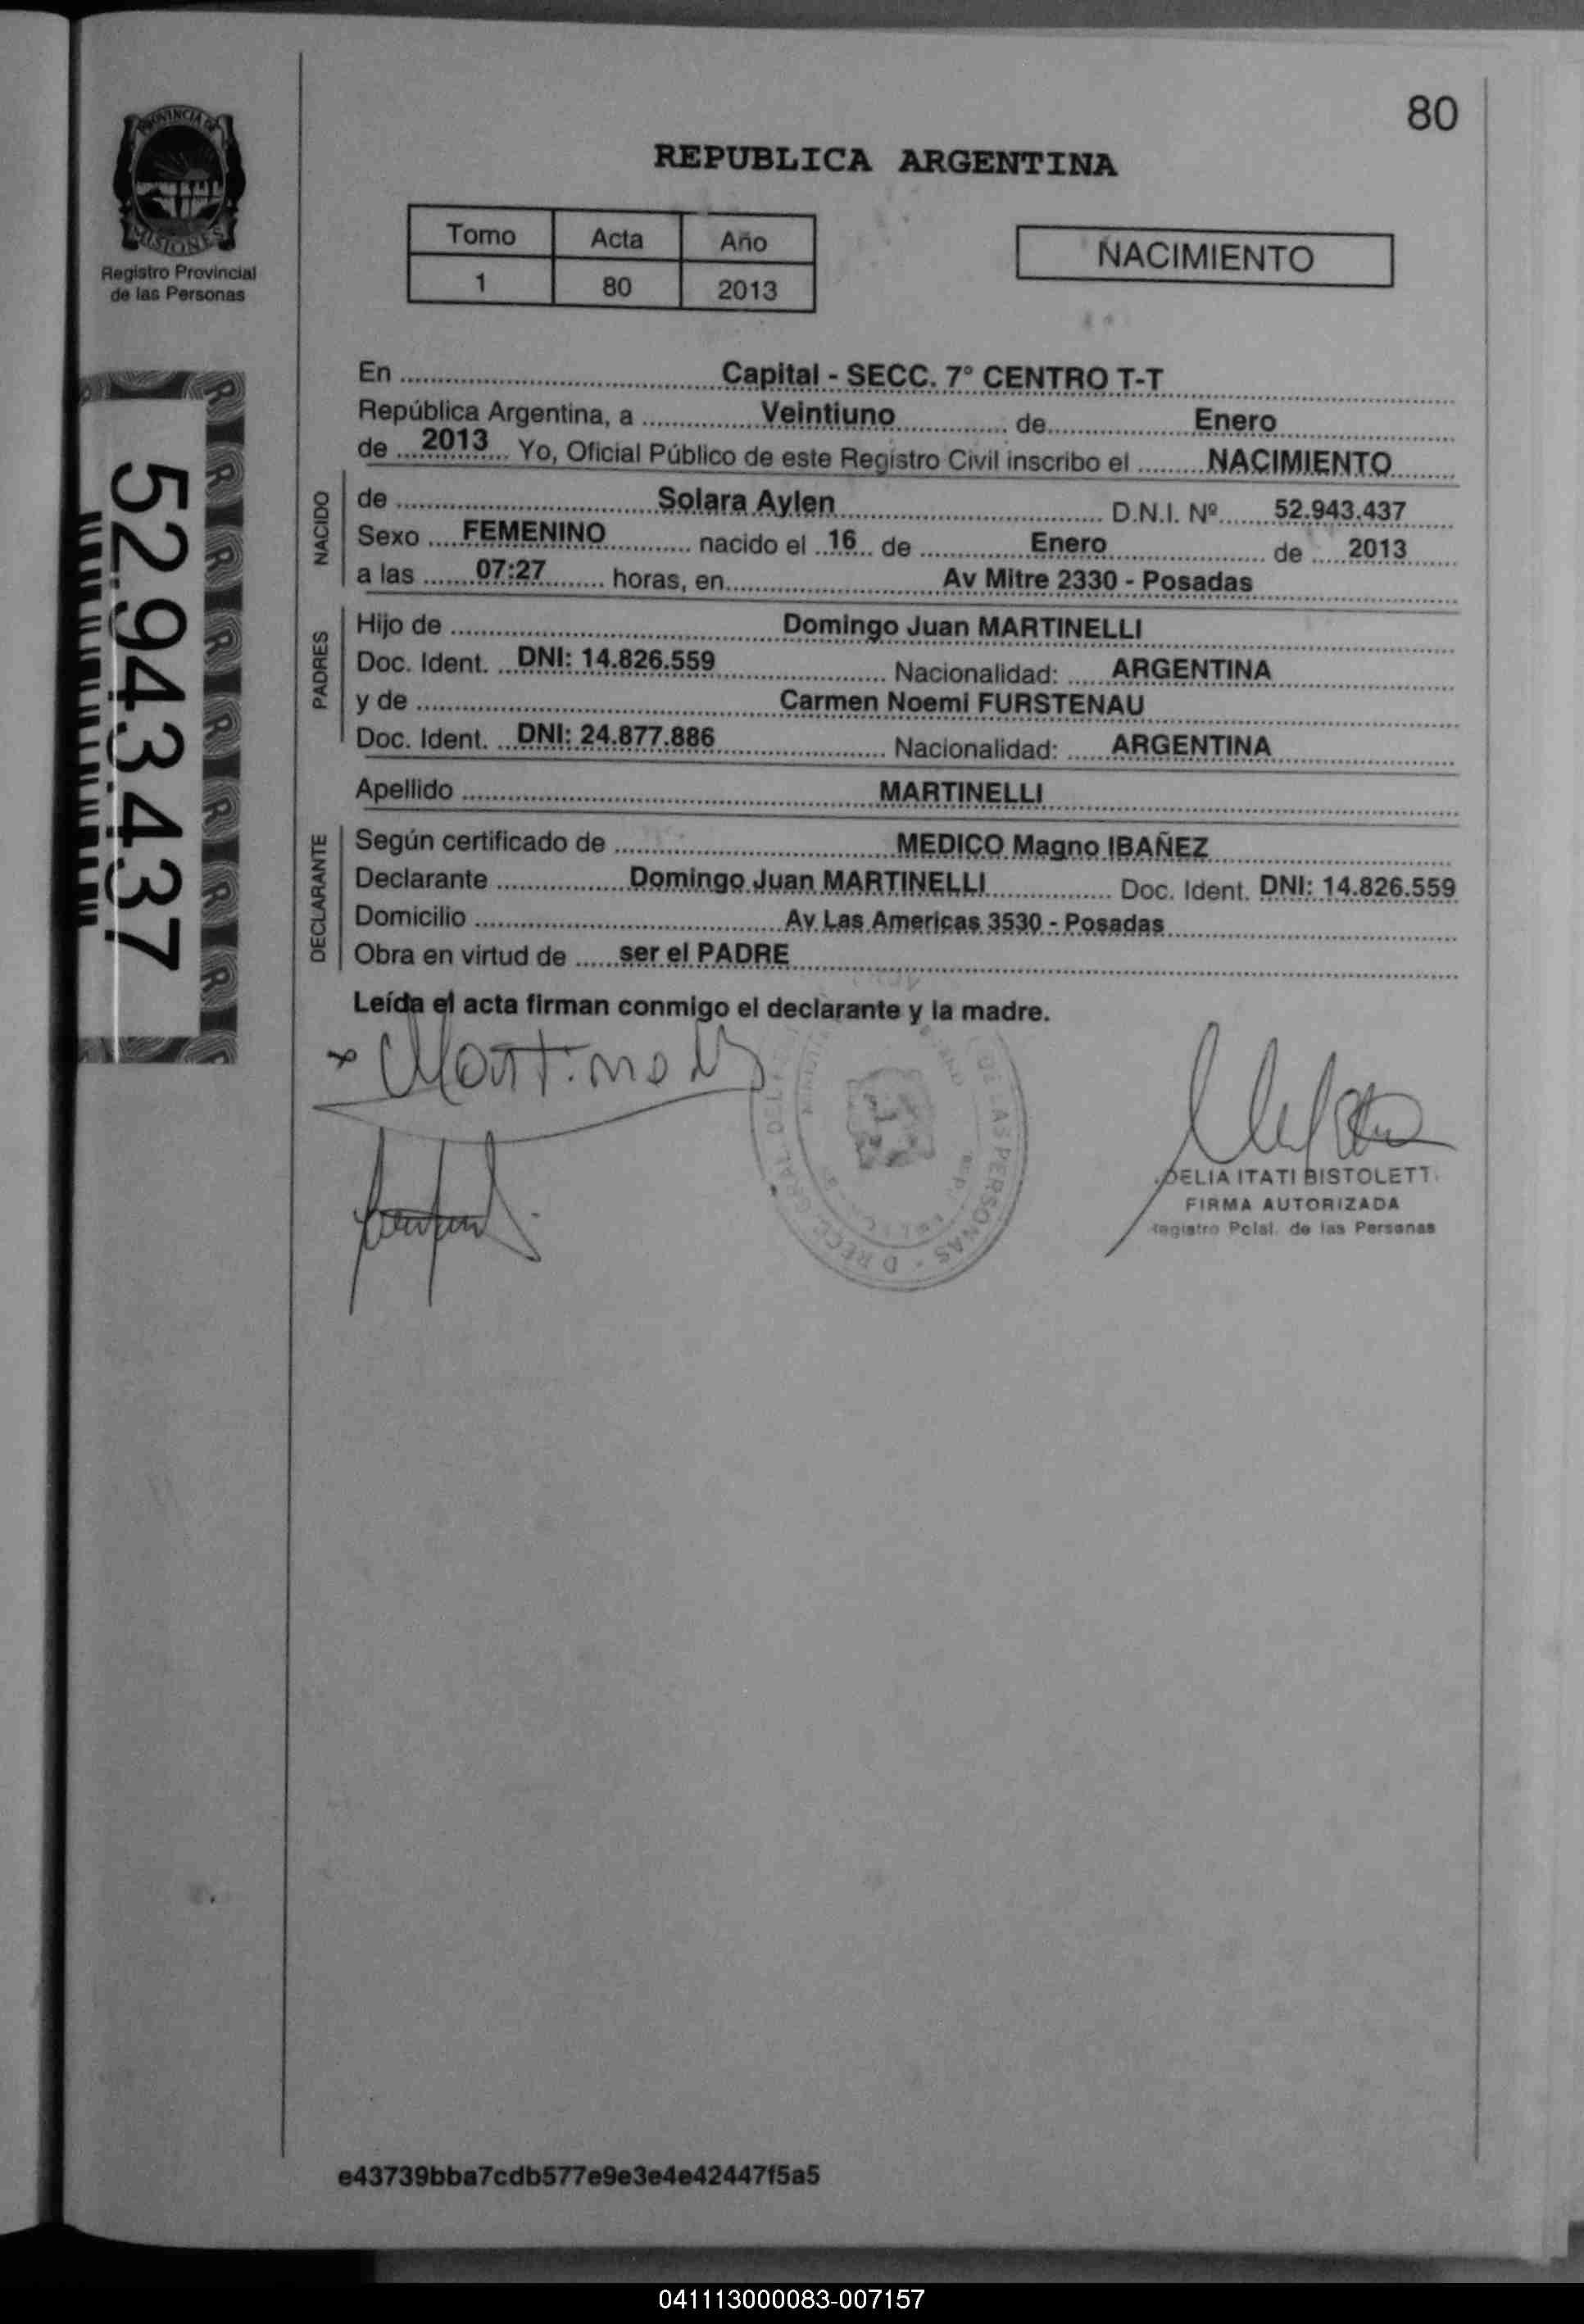 80
REPUBLICA ARGENTINA
PROVINCIA DE
MISIONES
Registro Provincial
de las Personas
Tomo Acta Año
1 80 2013
NACIMIENTO
52.943.437
En Capital - SECC. 7° CENTRO T-T
República Argentina, a Veintiuno de Enero
de 2013 Yo, Oficial Público de este Registro Civil inscribo el NACIMIENTO
NACIDO
de Solara Aylen D.N.I. Nº 52.943.437
Sexo FEMENINO nacido el 16 de Enero de 2013
a las 07:27 horas, en Av Mitre 2330 - Posadas
PADRES
Hijo de Domingo Juan MARTINELLI
Doc. Ident. DNI: 14.826.559 Nacionalidad: ARGENTINA
y de Carmen Noemi FURSTENAU
Doc. Ident. DNI: 24.877.886 Nacionalidad: ARGENTINA
Apellido MARTINELLI
DECLARANTE
Según certificado de MEDICO Magno IBAÑEZ
Declarante Domingo Juan MARTINELLI Doc. Ident. DNI: 14.826.559
Domicilio Av Las Americas 3530 - Posadas
Obra en virtud de ser el PADRE
Leída el acta firman conmigo el declarante y la madre.
DE LAS PERSONAS
DELIA ITATI BISTOLETT
FIRMA AUTORIZADA
Registro Pcial. de las Personas
e43739bba7cdb577e9e3e4e42447f5a5
041113000083-007157